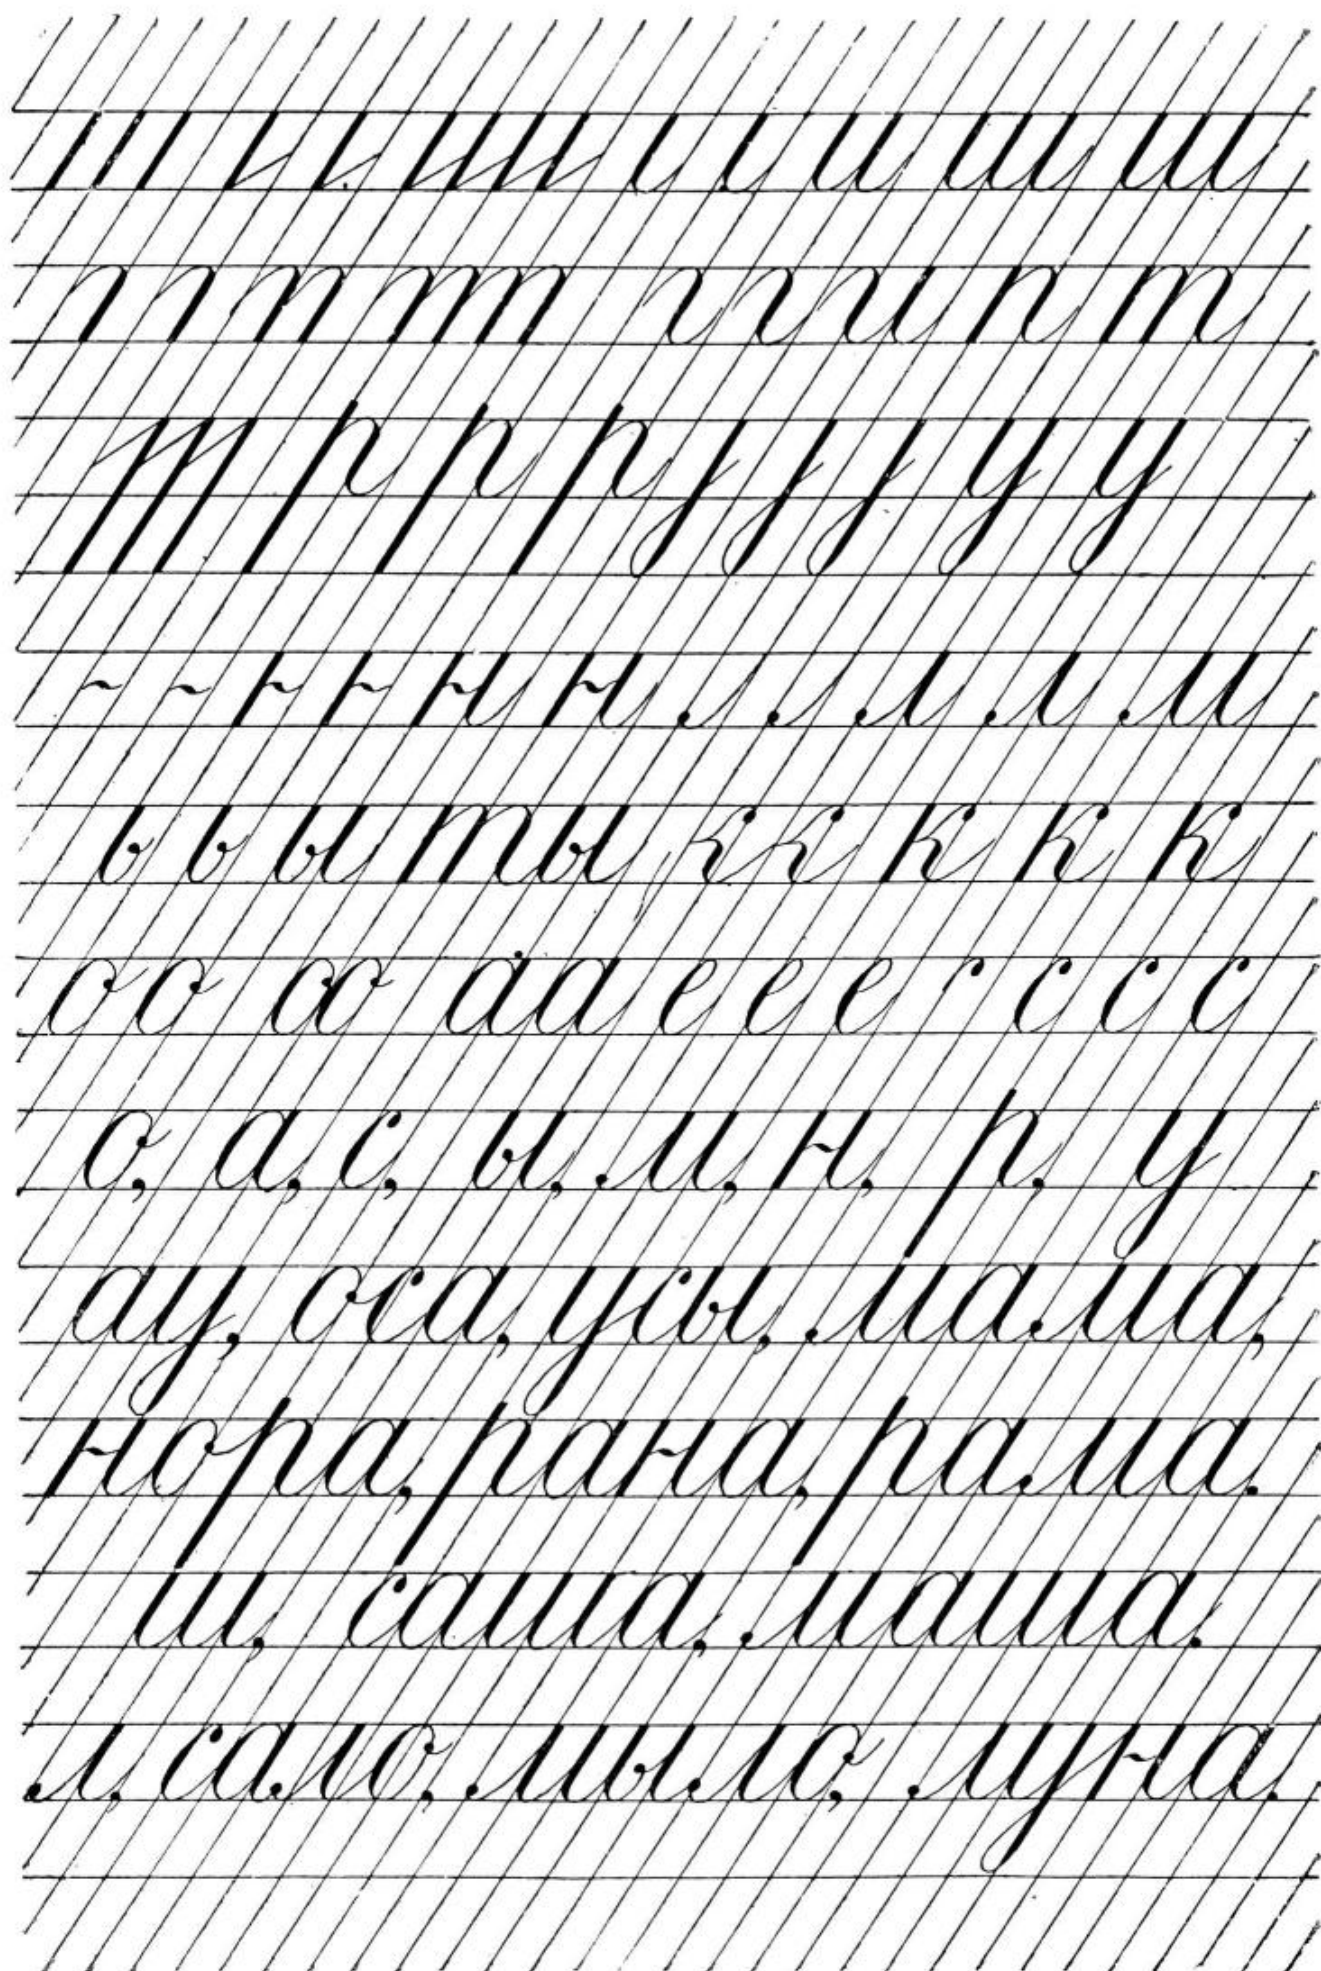 и и и ш ш
и п т
р р р у у
н н л л м
ь ы ты к к к к к
о о а а е е е с с с
о, а, с, ы, м, н, р, у
ау, оса, усы, мама,
нора, рана, рама.
ш, саша, маша.
л, сало, мыло, луна.